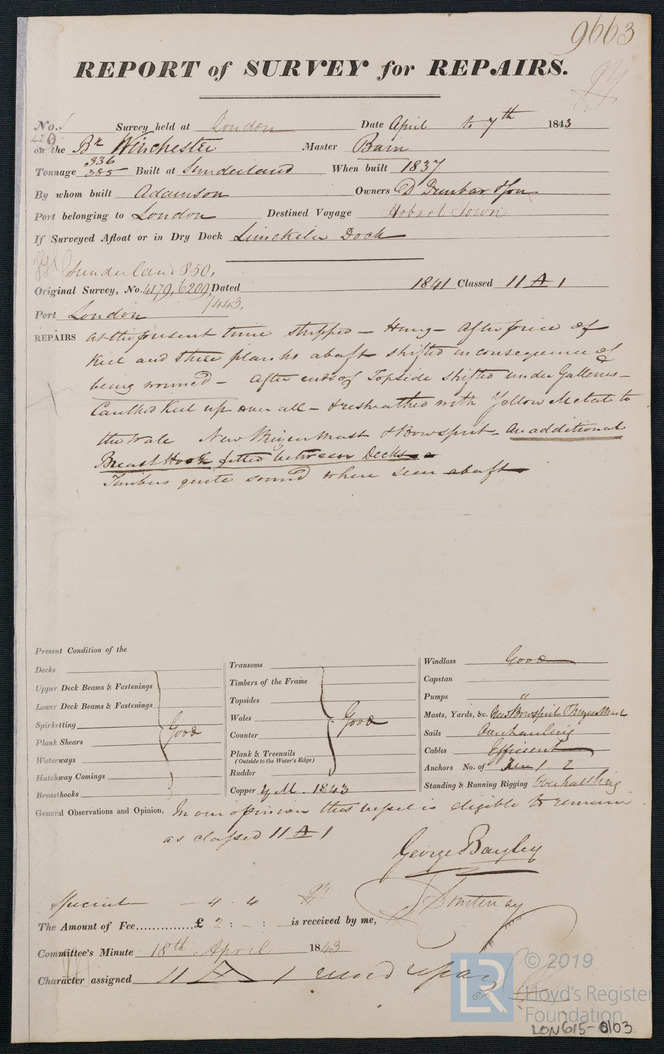 9663
REPORT of SURVEY for REPAIRS.
No. Survey held at London Date April to 7th 1843
on the Br Winchester Master Bain
Tonnage 336 385 Built at Sunderland When built 1837
By whom built Adamson Owners D Dunbar & Son
Port belonging to London Destined Voyage Hobart Town
If Surveyed Afloat or in Dry Dock Limekiln Dock
Sunderland 850,
Original Survey, No. 4179, 6209, Dated 1841 Classed 11 A 1
/443,
Port London
REPAIRS at the present time stripped - Hung - After piece of
Keel and three planks abaft shifted in consequence of
being wormed - After ends of Topside shifted under Galleries -
Caulked Keel up over all - & resheathed with Yellow Metal to
the wale New Mizen Mast & Bowsprit - An additional
Breast Hook fitted between Decks -
Timbers quite sound where seen abaft
Present Condition of the
Decks
Upper Deck Beams & Fastenings
Lower Deck Beams & Fastenings
Spirketting
Plank Shears
Waterways
Hatchway Comings
Breasthooks
Good
Transoms
Timbers of the Frame
Topsides
Wales
Counter
Plank & Treenails
(Outside to the Water's Edge)
Rudder
Good
Copper Y.M. 1843
Windlass Good
Capstan
Pumps "
Masts, Yards, &c. New Bowsprit & Mizen Mast
Sails Overhauling
Cables Efficient
Anchors No. of 1 2
Standing & Running Rigging Overhauling
General Observations and Opinion, In our opinion this vessel is eligible to remain
as classed 11 A 1
George Bayley
Special - 4. 4
The Amount of Fee.............. £ 2 : - : - is received by me,
Committee's Minute 18th April 1843
Character assigned 11 A 1
© 2019
LR
Lloyd's Register
Foundation
LON615-0103